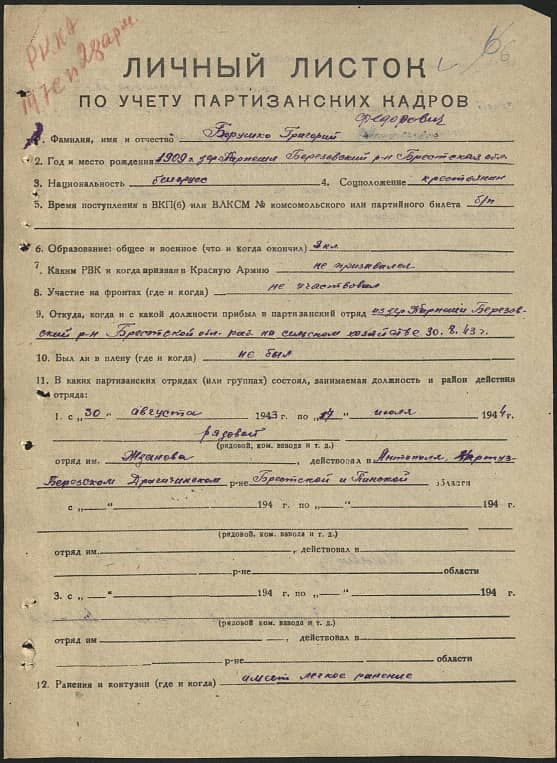 РККА
28 арм.
66
ЛИЧНЫЙ ЛИСТОК
ПО УЧЕТУ ПАРТИЗАНСКИХ КАДРОВ
Федорович
1. Фамилия, имя и отчество Борушко Григорий
2. Год и место рождения 1909 г. дер. Карпеши Березовский р-н Брестская обл.
3. Национальность белорус 4. Соцположение крестьянин
5. Время поступления в ВКП(б) или ВЛКСМ № комсомольского или партийного билета б/п
6. Образование: общее и военное (что и когда окончил) 3 кл
7. Каким РВК и когда призван в Красную Армию не призывался
8. Участие на фронтах (где и когда) не участвовал
9. Откуда, когда и с какой должности прибыл в партизанский отряд из дер. Карпеши Березов-
ский р-н Брестской обл. раб. на сельском хозяйстве 30. 8. 43 г.
10. Был ли в плену (где и когда) не был
11. В каких партизанских отрядах (или группах) состоял, занимаемая должность и район действия
отряда:
1. с „30“ августа 1943 г. по „17“ июля 1944 г.
рядовой
(рядовой, ком. взвода и т. д.)
отряд им. Жданова, действовал в Антополь, Картуз-
Березском Драгичинском р-не Брестской и Пинской области
с „ “ 194 г. по „ “ 194 г.
(рядовой, ком. взвода и т. д.)
отряд им. , действовал в
р-не области
3. с „ “ 194 г. по „ “ 194 г.
(рядовой, ком. взвода и т. д.)
отряд им. , действовал в
р-не области
12. Ранения и контузии (где и когда) имеет легкое ранение